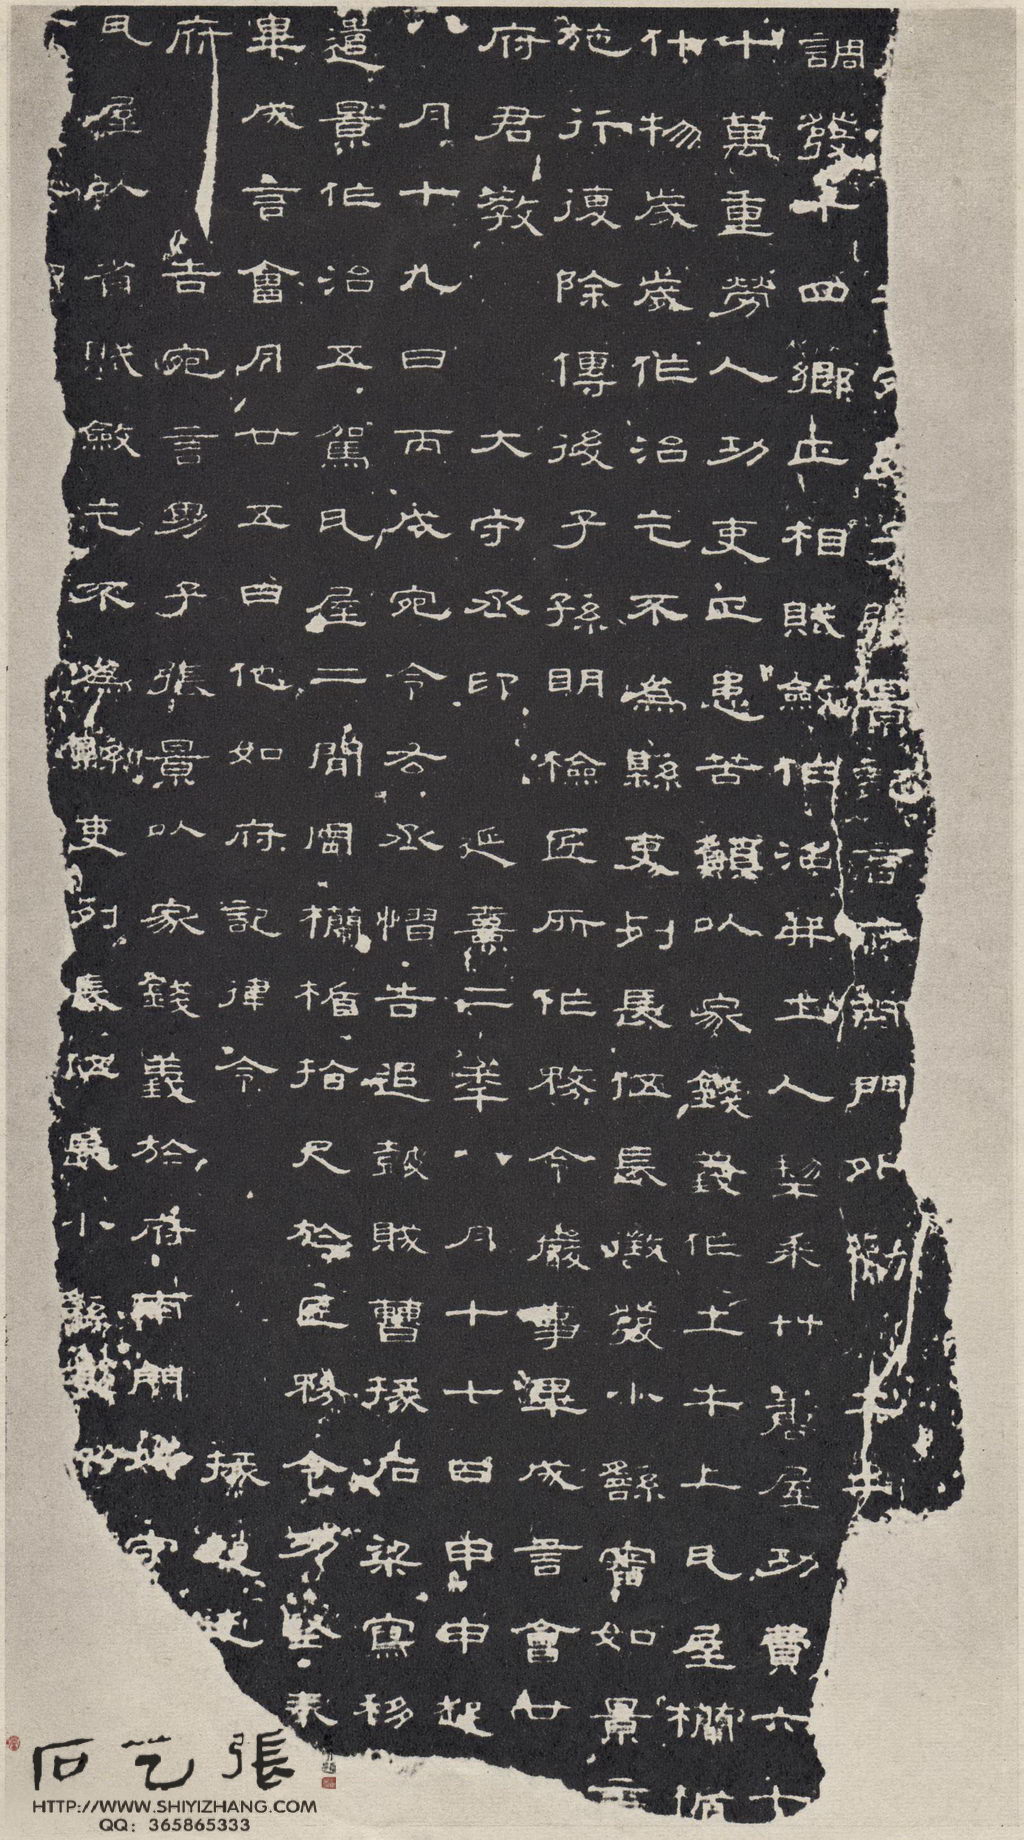 子張景記言府南門外勸土牛
調發十四鄉正相賦斂作治并土人犂耒艹蓑屋功費六七
十萬重勞人功吏正患苦願以家錢義作土牛上瓦屋欄楯
什物歲歲作治乞不為縣吏列長伍長徵發小繇審如景言
施行復除傳後子孫明檢匠所作務令嚴事畢成言會廿
府君教 大守丞印 延熹二年八月十七日甲申起
八月十九日丙戌宛令右丞慴告追鼓賊曹掾石梁寫移
遣景作治五駕瓦屋二間周欄楯拾尺於匠務令功堅奉
畢成言會月廿五日他如府記律令 掾趙述
府告宛言男子張景以家錢義於府南門外守
瓦屋以省賦斂乞不為縣吏列長伍長小繇
張艺石
HTTP://WWW.SHIYIZHANG.COM
QQ: 365865333